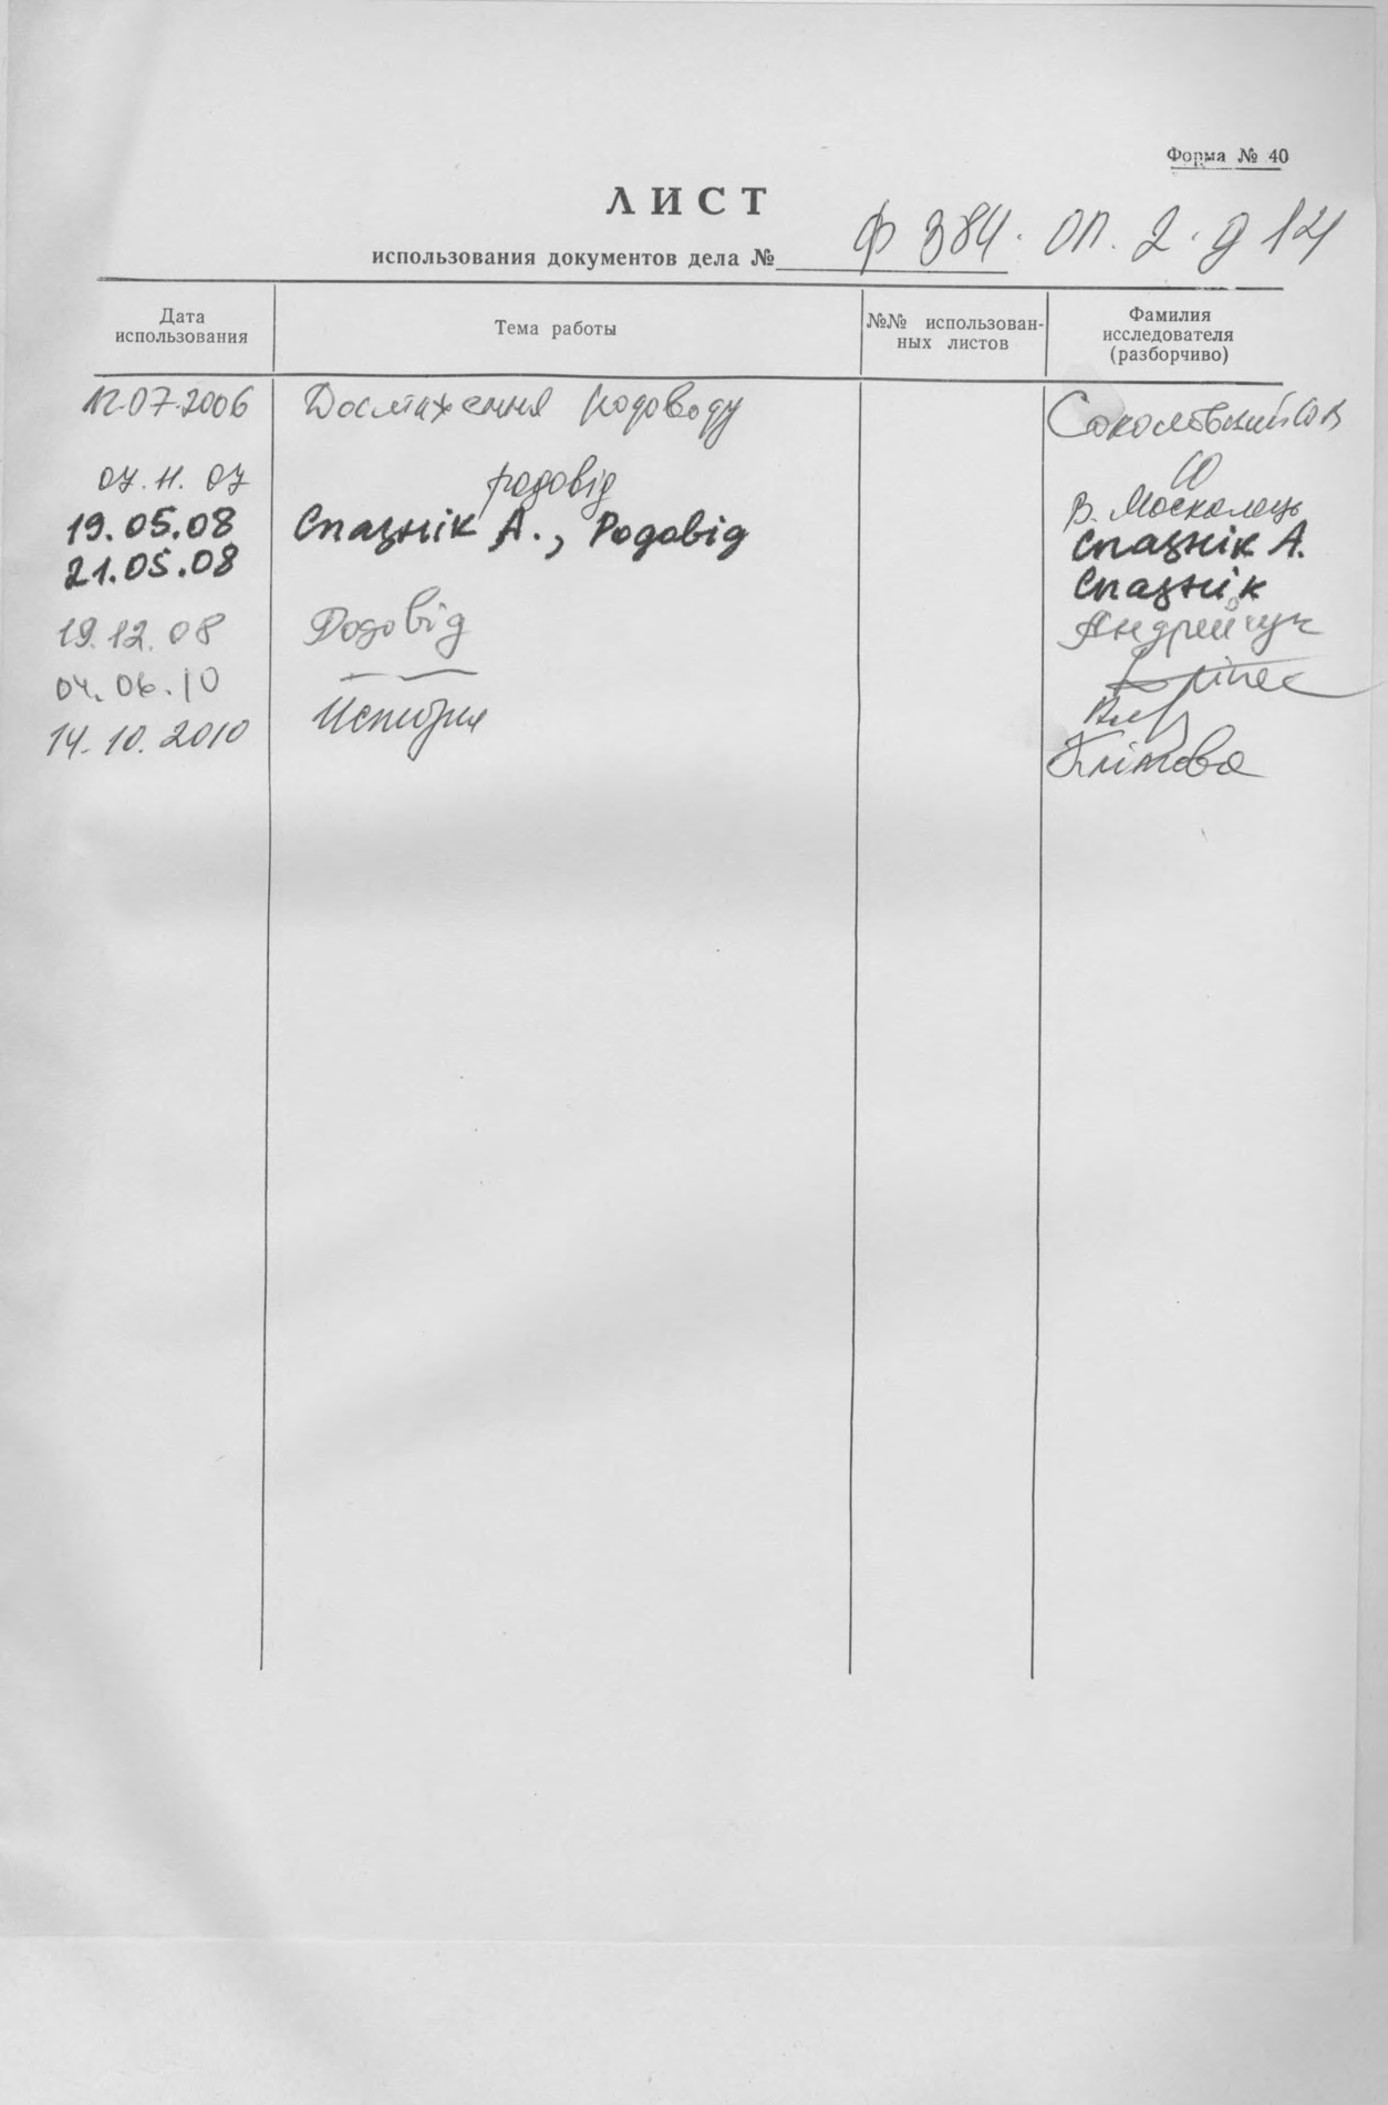 Форма № 40
ЛИСТ
использования документов дела № ф 384. оп. 2. д 124
Дата использования
Тема работы
№№ использован-
ных листов
Фамилия
исследователя
(разборчиво)
12.07.2006 Дослідження родоводу Соколовский Ю В
07.11.07 родовід В. Москалець
19.05.08 Спазнік А., Родовід Спазнік А.
21.05.08 Спазнік
19.12.08 Родовід Андрейчук
04.06.10
14.10.2010 История Клімова